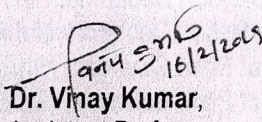 विनय कुमार
16/2/2019
Dr. Vinay Kumar,